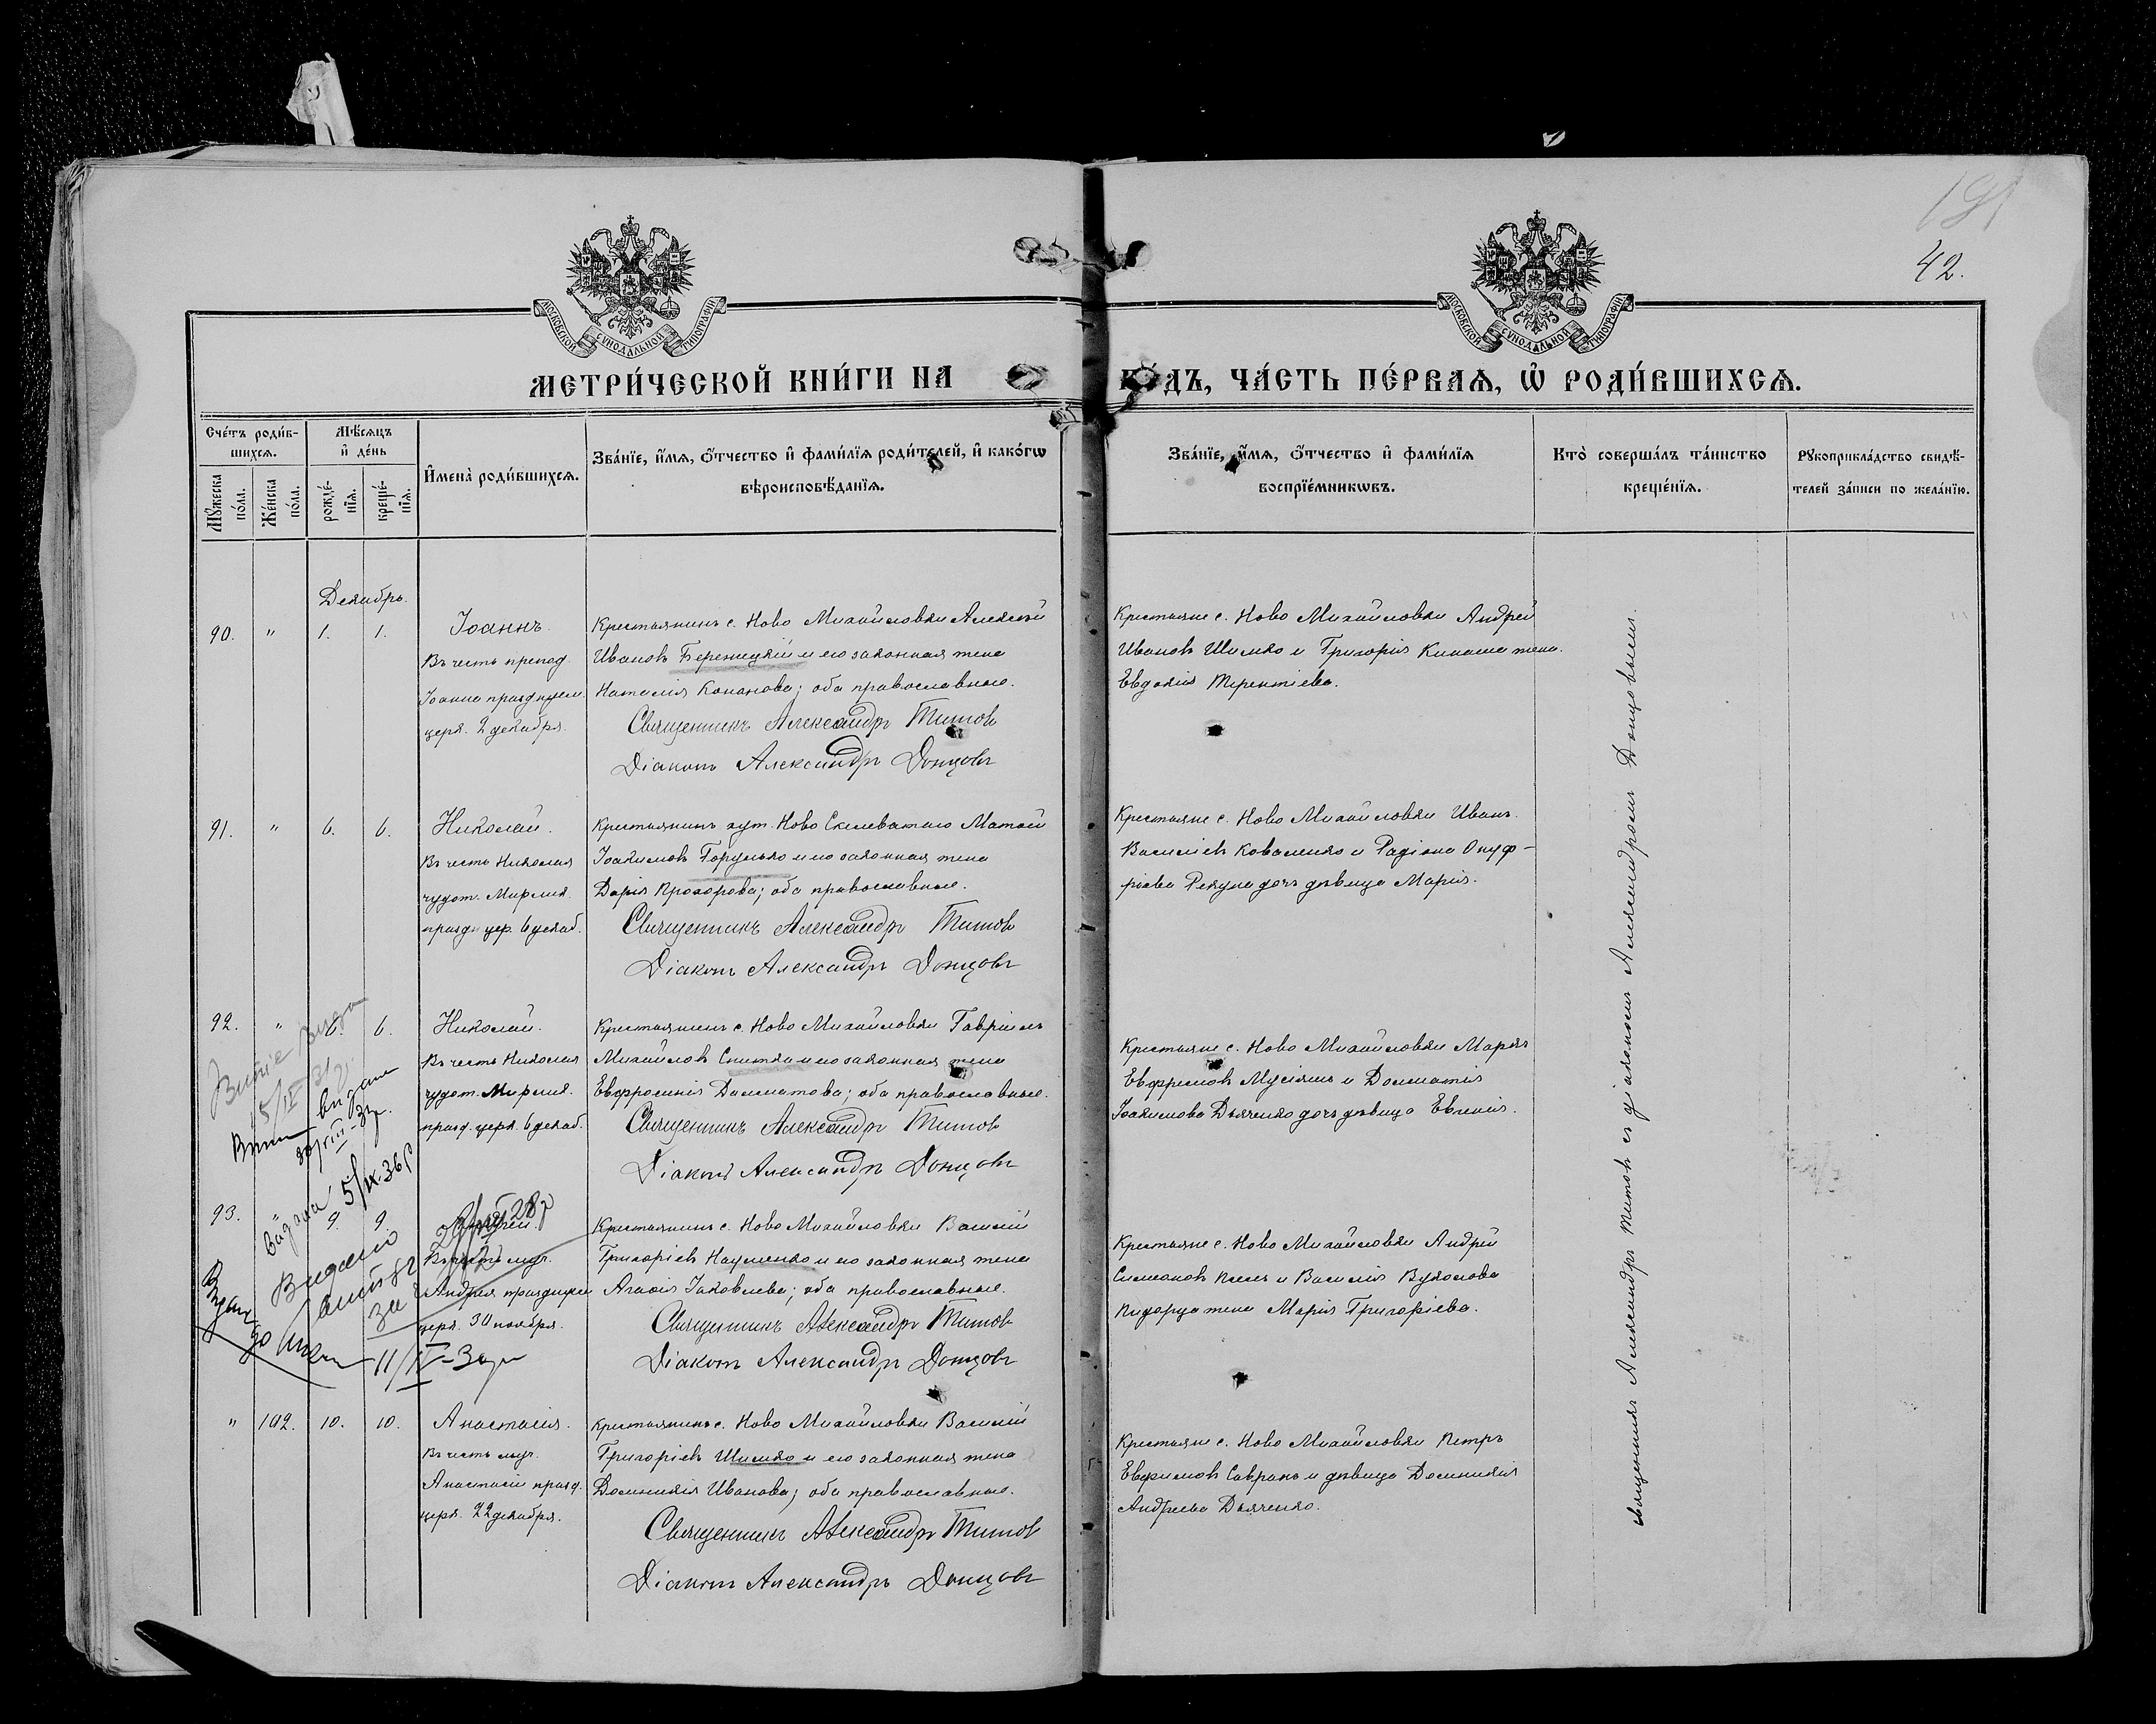 42.
МОСКОВСКОЙ СѴНОДАЛЬНОЙ ТИПОГРАФІИ
МОСКОВСКОЙ СѴНОДАЛЬНОЙ ТИПОГРАФІИ
МЕТРИ́ЧЕСКОЙ КНИ́ГИ НА
ГО́ДЪ, ЧА́СТЬ ПЕ́РВАѦ, Ѡ҆ РОДИ́ВШИХСѦ.
Сче́тъ роди́в-
шихсѧ.
Мꙋ́жеска по́ла.
Же́нска по́ла.
Мѣ́сѧцъ и҆ де́нь
рожде́-нїѧ.
креще́-нїѧ.
И҆мена̀ роди́вшихсѧ.
Зва́нїе, и҆́мѧ, ѻ҆́тчество и҆ фами́лїѧ роди́телей, и҆ како́гѡ
вѣроисповѣ́данїѧ.
Зва́нїе, и҆́мѧ, ѻ҆́тчество и҆ фами́лїѧ
воспрїе́мникѡвъ.
Кто̀ соверша́лъ та́инство
креще́нїѧ.
Рꙋкоприкла́дство свидѣ́-
телей за́писи по жела́нїю.
Декабрь.
90. " 1. 1. Іоаннъ.
Въ честь препод.
Іоанна празднуем.
церк. 2 декабря.
Крестьянинъ с. Ново Михайловки Алексѣй
Ивановъ Бережецкій и его законная жена
Наталія Конанова; оба православные.
Священникъ Александръ Титовъ
Діаконъ Александръ Донцовъ
Крестьяне с. Ново Михайловки Андрей
Ивановъ Шимко и Григорія Кинаша жена
Евдокія Терентіева.
91. " 6. 6. Николай.
Въ честь Николая
чудот. Мирлик.
праздн цер. 6 декаб.
Крестьянинъ хут. Ново Скелеватаго Матѳій
Іоакимовъ Горунько и его законная жена
Дарія Прохорова; оба православные.
Священникъ Александръ Титовъ
Діаконъ Александръ Донцовъ
Крестьяне с. Ново Михайловки Иванъ
Василіевъ Коваленко и Радіона Онуф-
ріева Рекуна дочь дѣвица Марія.
92. " 6. 6. Николай.
Въ честь Николая
чудот. Мирлик.
празд. церк. 6 декаб.
Крестьянинъ с. Ново Михайловки Гавріилъ
Михайловъ Снитка и его законная жена
Евфросинія Далматова; оба православные.
Священникъ Александръ Титовъ
Діаконъ Александръ Донцовъ
Крестьяне с. Ново Михайловки Маркъ
Евфремовъ Мусіяшъ и Домнатія
Іоакимова Дьяченко дочь дѣвица Евгенія.
93. " 9. 9. Андрей.
Въ честь муч.
Андрея празднуем
церк. 30 ноября.
Крестьянинъ с. Ново Михайловки Василій
Григоріевъ Науменко и его законная жена
Агаѳія Іаковлева; оба православные.
Священникъ Александръ Титовъ
Діаконъ Александръ Донцовъ
Крестьяне с. Ново Михайловки Андрей
Симеоновъ и Василія Вуколова
жена Марія Григоріева.
5/IX.36р
Видано
11/IV-
" 102. 10. 10. Анастасія.
Въ честь муч.
Анастасіи празд.
церк. 22 декабря.
Крестьянинъ с. Ново Михайловки Василій
Григоріевъ Шимко и его законная жена
Домникія Иванова; оба православные.
Священникъ Александръ Титовъ
Діаконъ Александръ Донцовъ
Крестьяне с. Ново Михайловки Петръ
Евфимовъ Савранъ и дѣвица Домникія
Андреева Дьяченко.
священникъ Александръ Титовъ съ діакономъ Александромъ Донцовымъ.